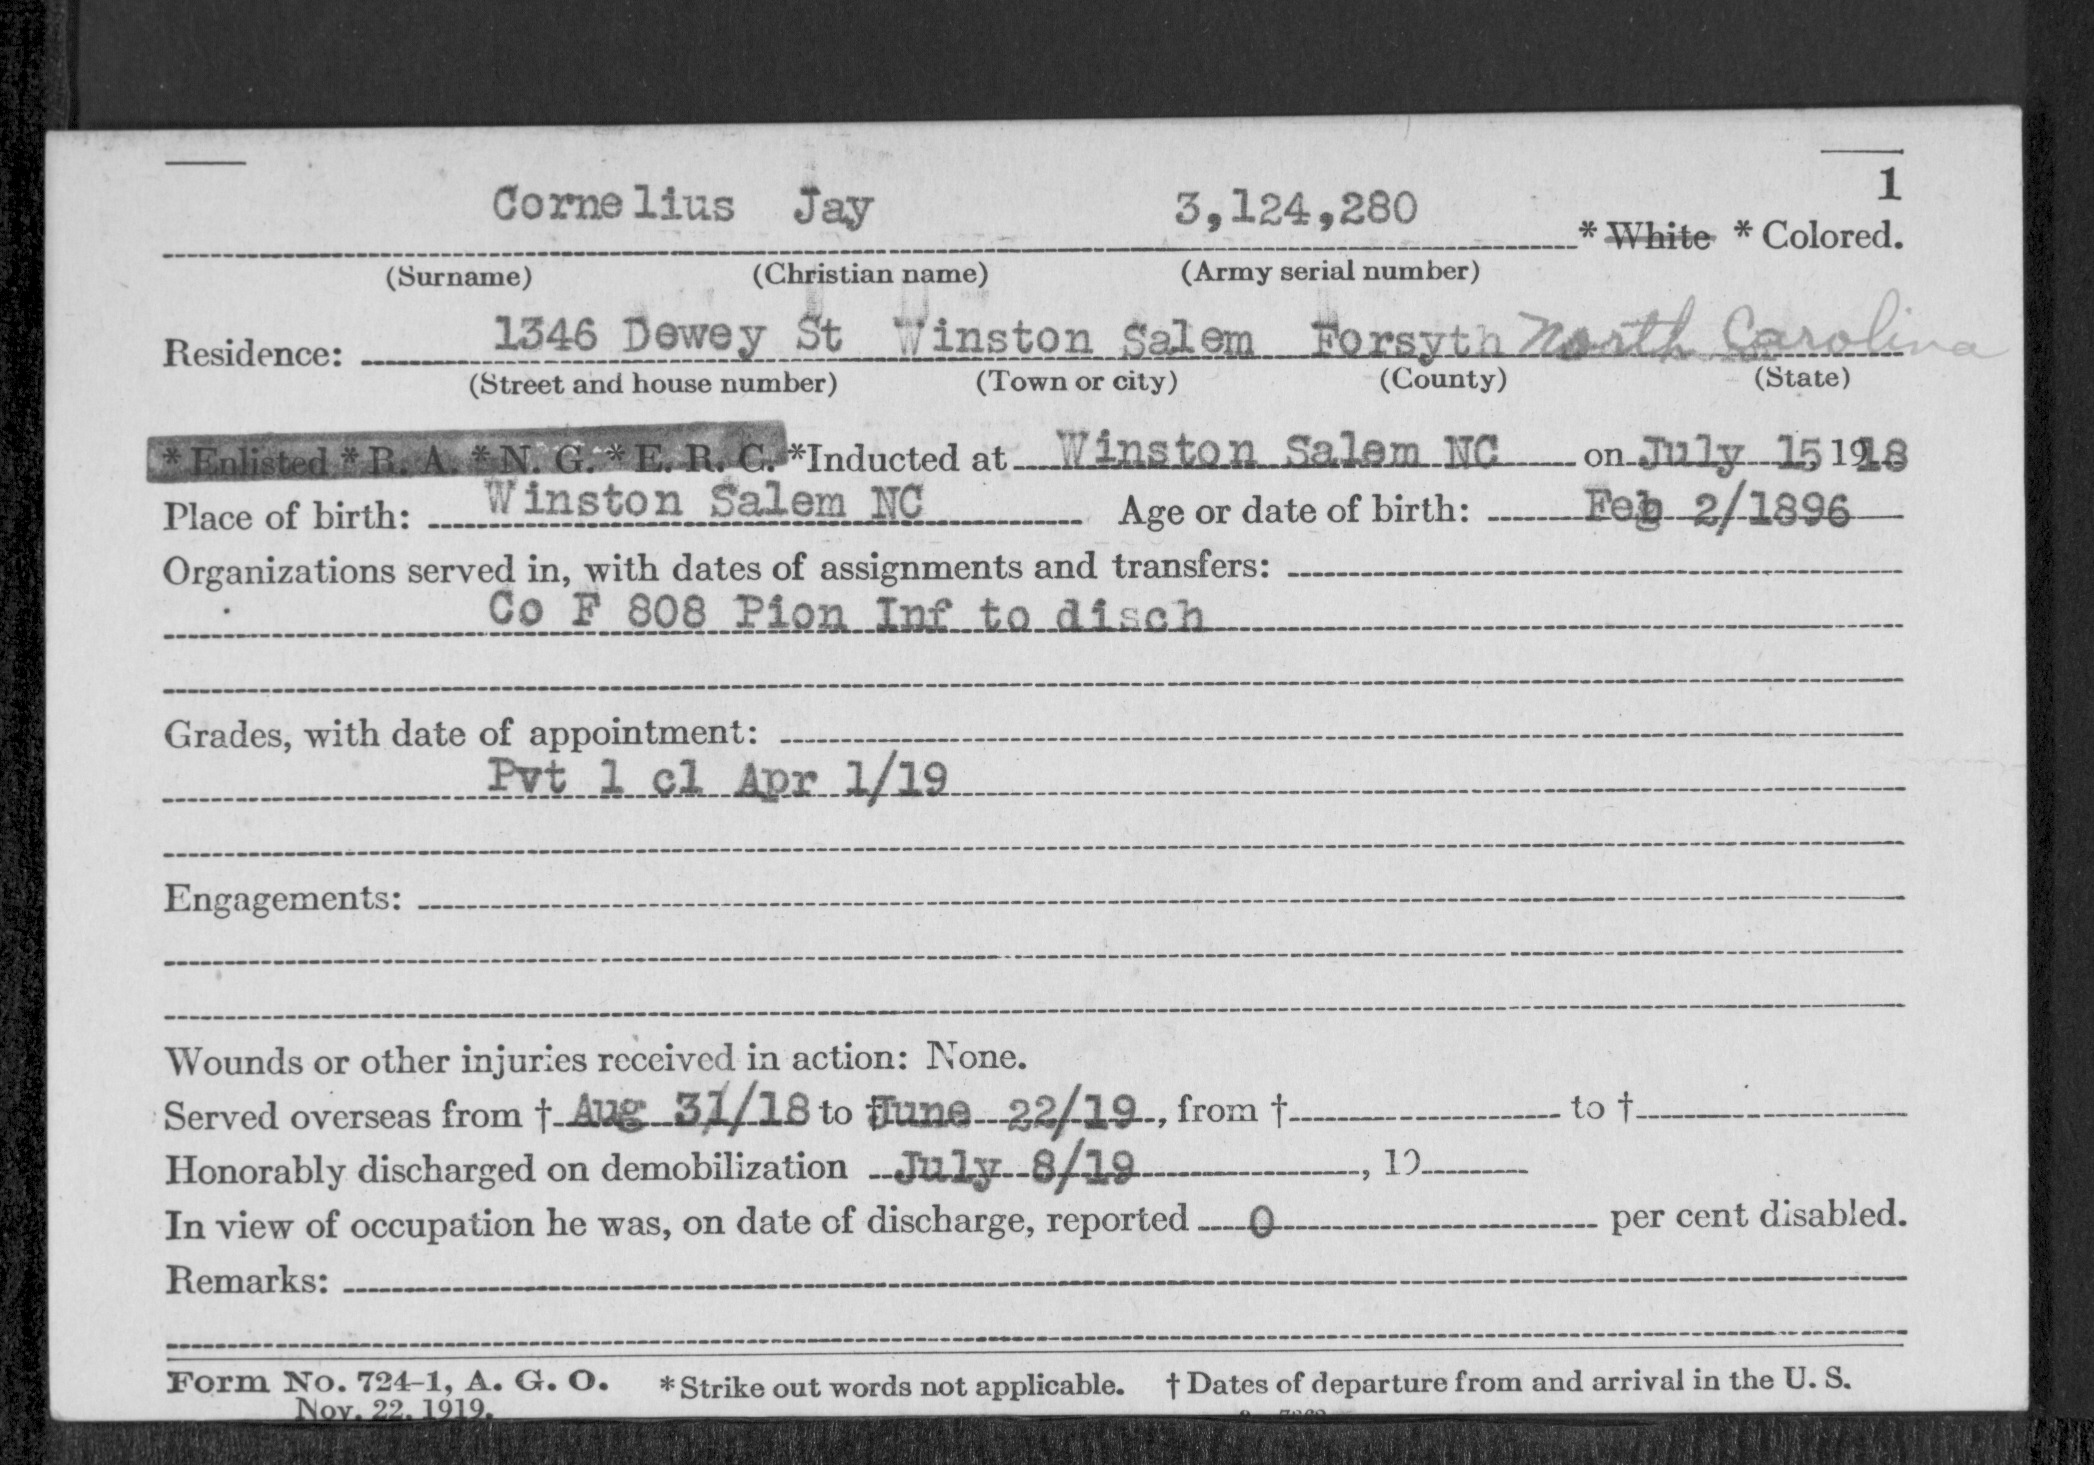 1
Cornelius Jay 3,124,280 * White * Colored.
(Surname) (Christian name) (Army serial number)
Residence: 1346 Dewey St Winston Salem Forsyth North Carolina
(Street and house number) (Town or city) (County) (State)
* Enlisted * R. A. * N. G. * E. R. C. *Inducted at Winston Salem NC on July 15 1918
Place of birth: Winston Salem NC Age or date of birth: Feb 2/1896
Organizations served in, with dates of assignments and transfers:
Co F 808 Pion Inf to disch
Grades, with date of appointment:
Pvt 1 cl Apr 1/19
Engagements:
Wounds or other injuries received in action: None.
Served overseas from † Aug 31/18 to † June 22/19, from † to †
Honorably discharged on demobilization July 8/19, 19
In view of occupation he was, on date of discharge, reported 0 per cent disabled.
Remarks:
Form No. 724-1, A. G. O. * Strike out words not applicable. † Dates of departure from and arrival in the U. S.
Nov. 22, 1919.